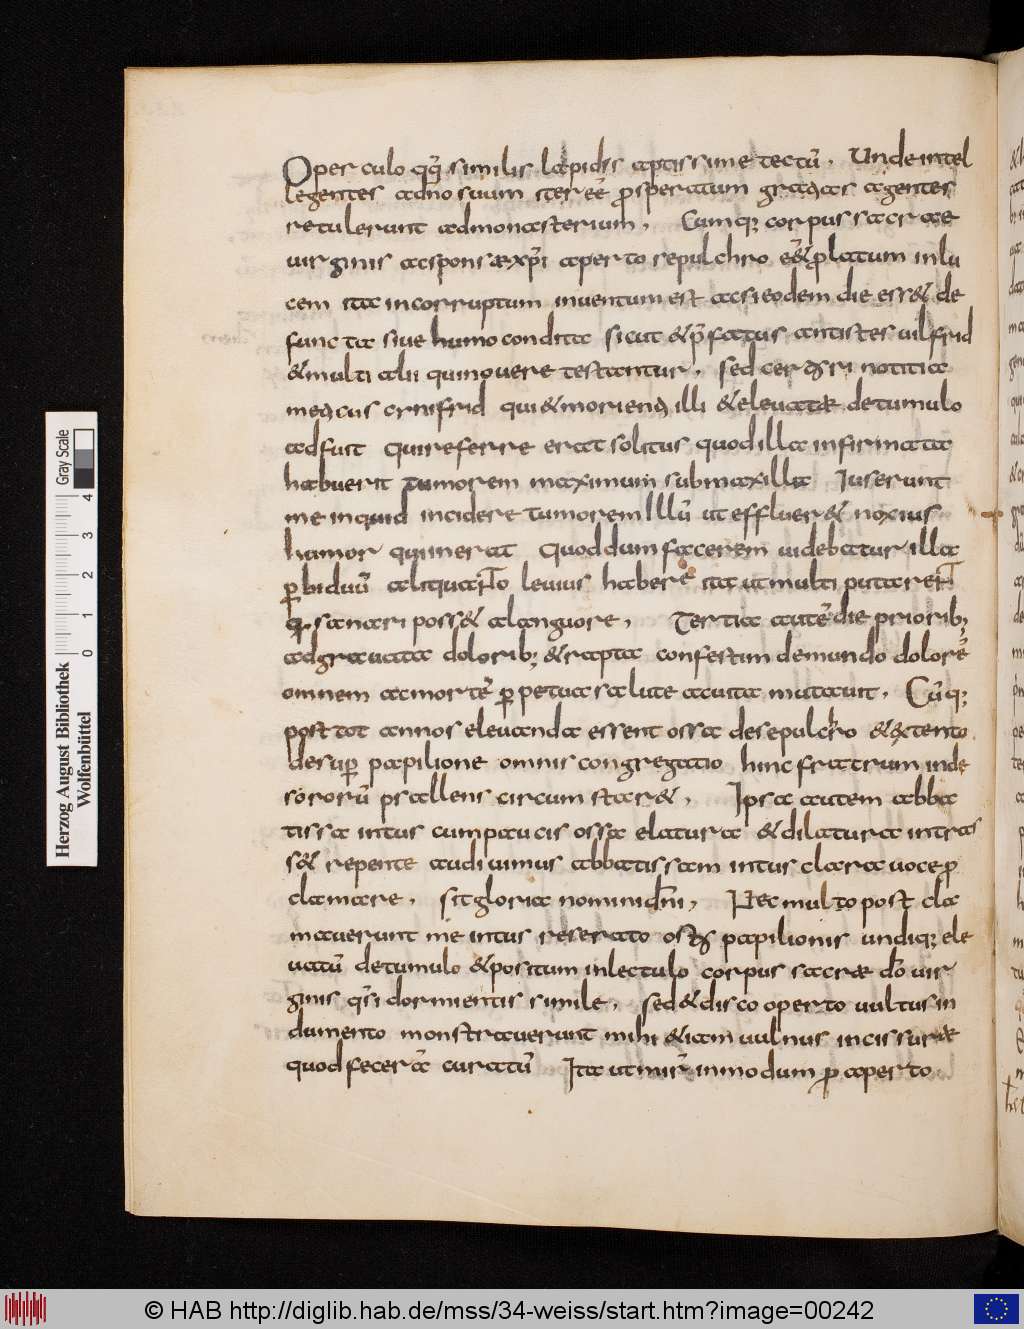 Oper culo qq̄ similis lapidis aptissime tectū. Unde intel
legentes adno suum iter eē ꝓsperatum gratias agentes
retulerunt admonasterium. Cumq; corpus sacrae
uirginis acsponsae xp̄i aperto sepulchro eē & ꝓlatum inlu
cem ita incorruptum inuentum est acsieodem die ess& de
functa siue humo condita sicut & p̄fatus antistes uilfrid
& multi alii quinouere testantur. Sed certi
mecus cynifrid qui & morienti illi & eleuatae detumulo
adfuit quireferre erat solitus quodilla infirmata
habuerit tumorem maximum submaxilla Iuserunt
me inquid incidere tumorem Illū ut efflueret & noxius
humor quiinerat Quoddum facerem uidebatur illa
ꝑbiduū aliquanto leuius habere ita utmulti putarent
q: sanari poss& alanguore. Tertia autē die priorib;
adgrauata dolorib; & rapta confestim demundo dolorē
omnem acmortē ꝑpetua salute acuita mutauit. Cūq;
post tot annos eleuanda essent ossa desepulchro & extento
desuꝑ papilione omnis congregatio hinc fratrum inde
sororū psallens circum star&. Ipsa autem abba
tissa intus cumpaucis ossa elatura & dilatura intras
s& repente audiuimus abbatissam intus clara uoce ꝓ
clamare. sit gloria nominidn̄i. Nec multo post cla
mauerunt me intus reserato ostio papilionis undiq; ele
uatū detumulo & positum inlectulo corpus sacrae dō uir
ginis q̄si dormientis simile. Sed & disco operto uultus in
dumento monstrauerunt mihi & iam uulnus incissurae
quod fecerā curatū Ita utmirū inmodum ꝓ aperto
Herzog August Bibliothek
Wolfenbüttel
0 1 2 3 4
Gray Scale
© HAB http://diglib.hab.de/mss/34-weiss/start.htm?image=00242